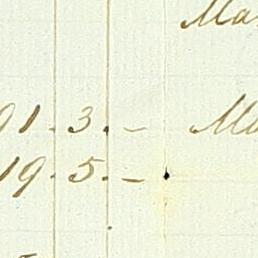 Ma
91.3.- Ma
19.5.-